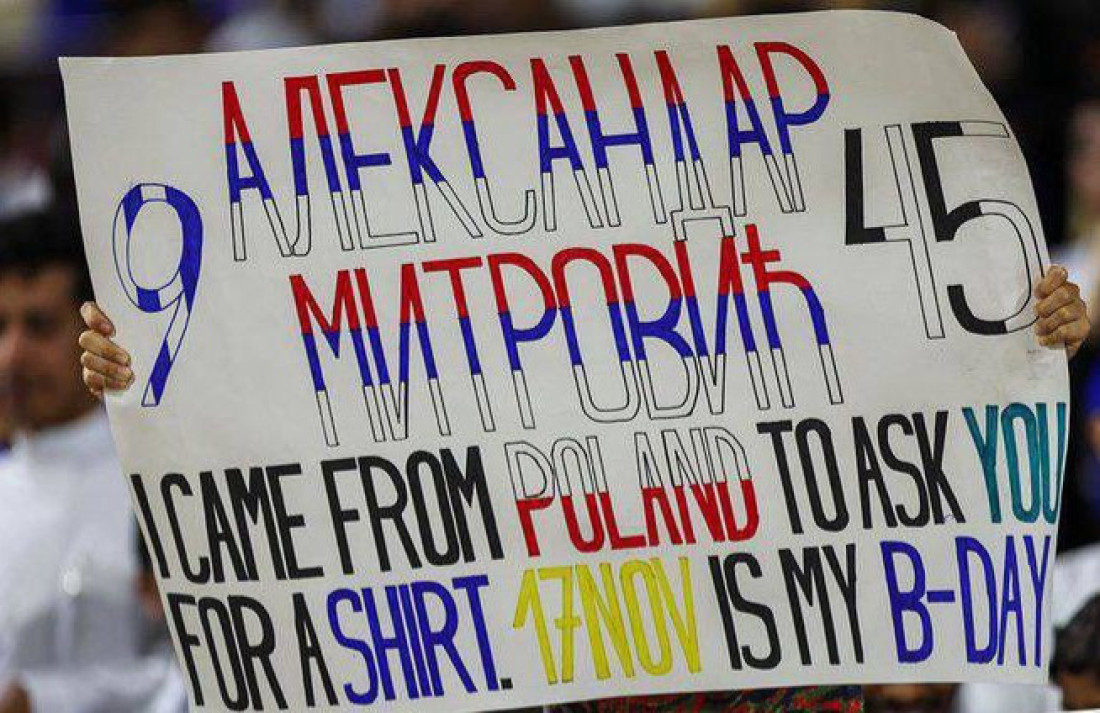 АЛЕКСАНДАР
9 45
МИТРОВИЋ
I CAME FROM POLAND TO ASK YOU
FOR A SHIRT. 17 NOV IS MY B-DAY